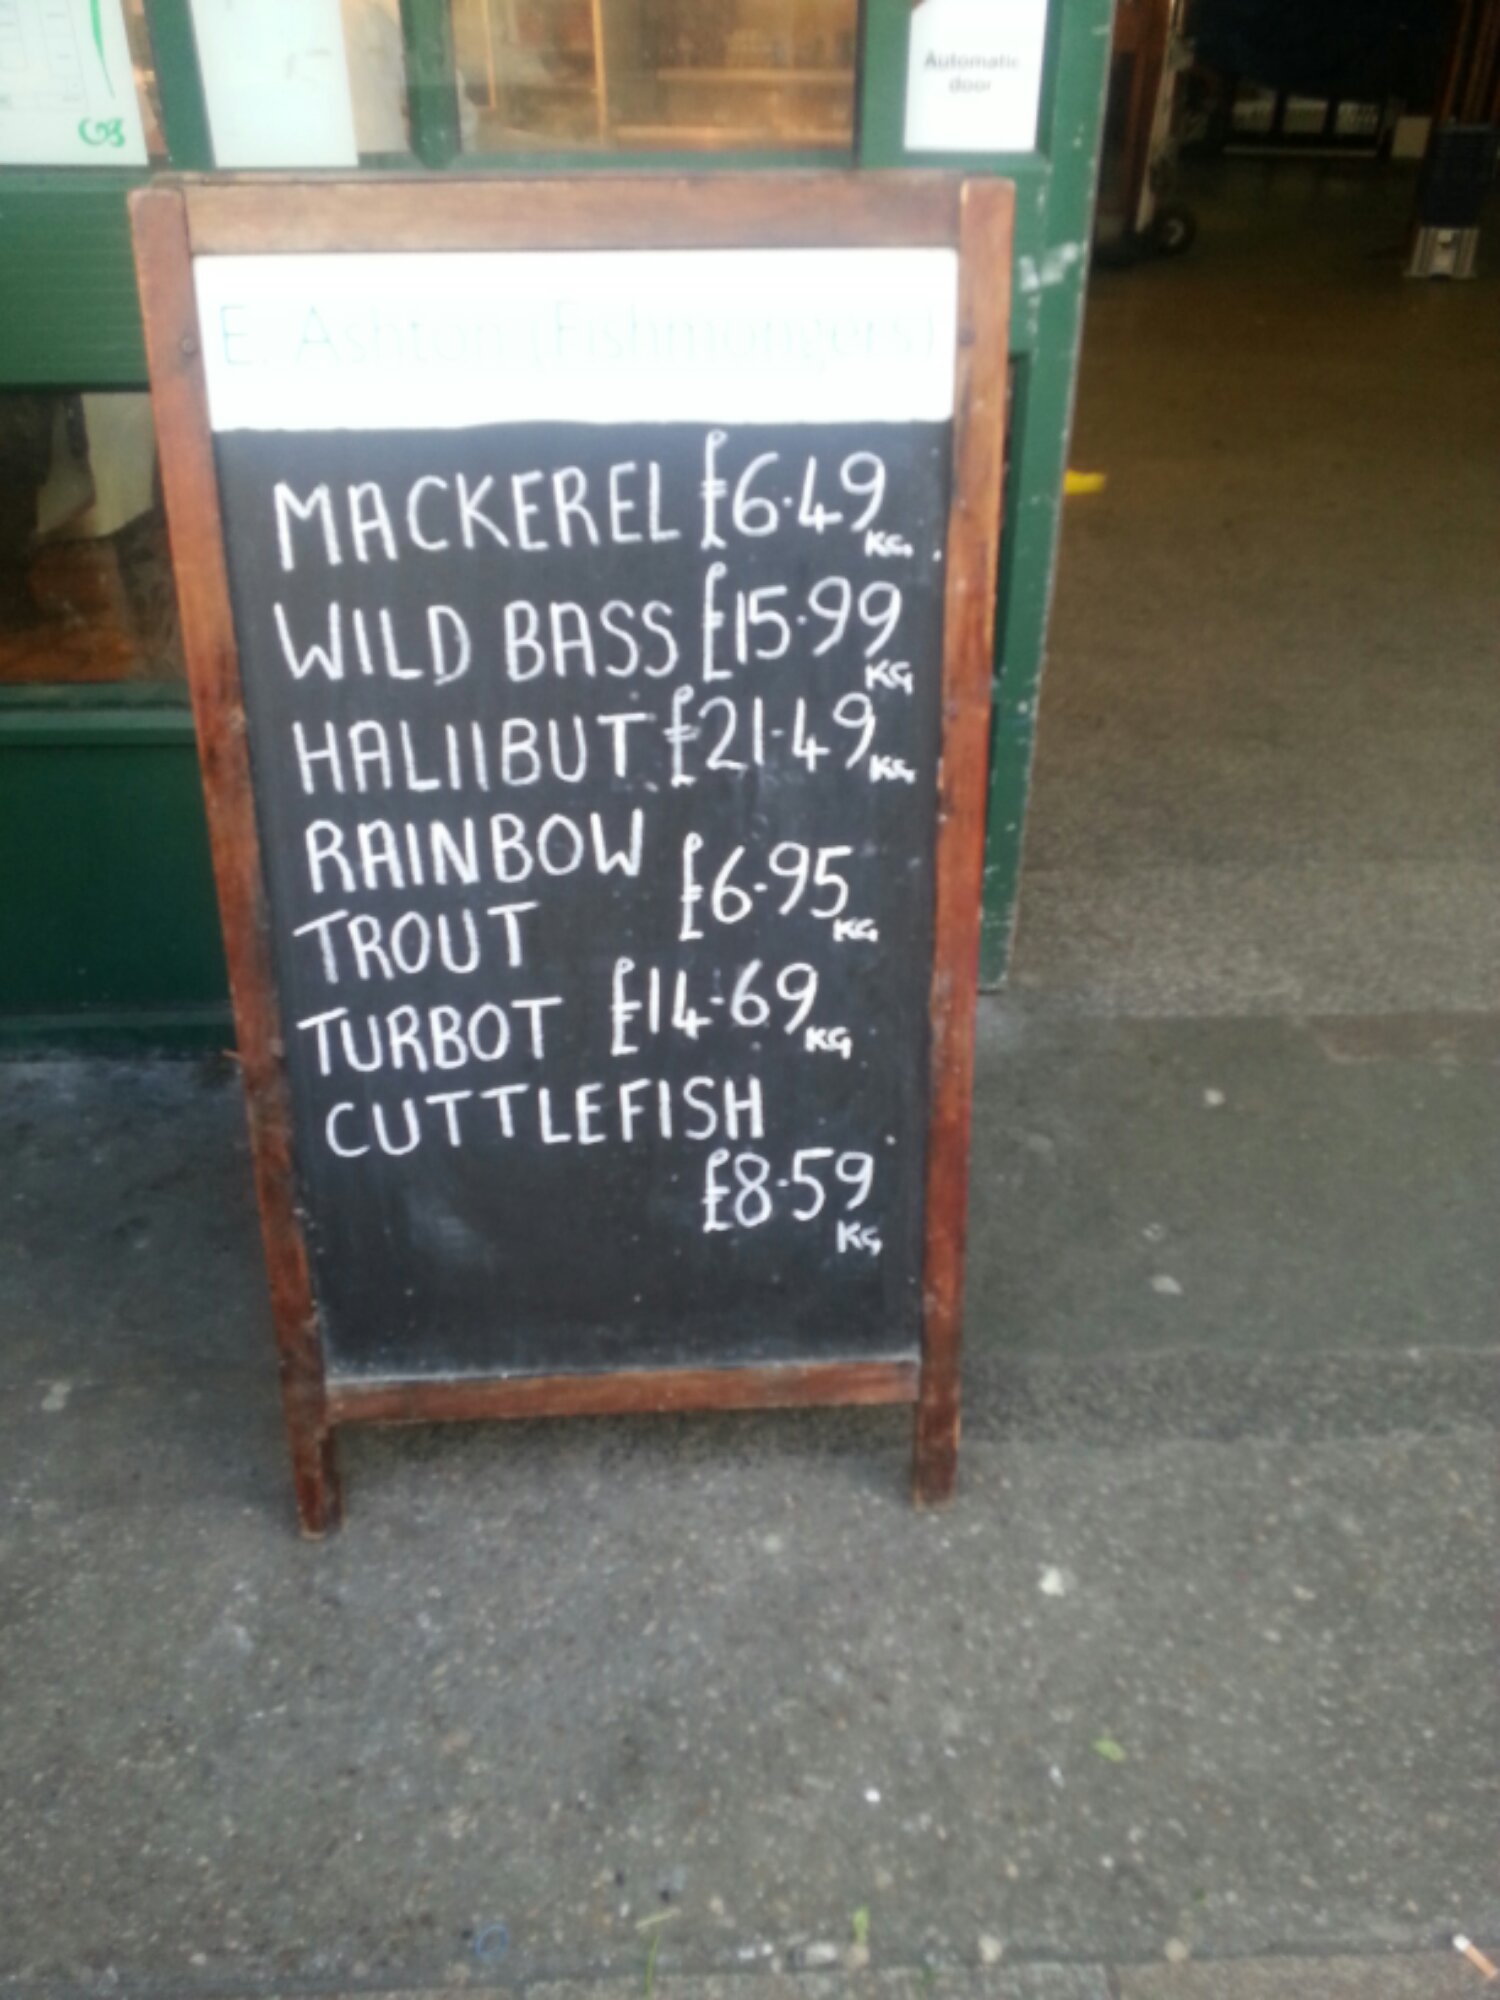 Automatic
door
E. Ashton (Fishmongers)
MACKEREL £6.49 KG.
WILD BASS £15.99 KG
HALIIBUT £21.49 KG
RAINBOW
TROUT £6.95 KG
TURBOT £14.69 KG
CUTTLEFISH
£8.59
KG